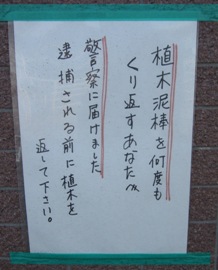 植木泥棒を何度も
くり返すあなたへ
警察に届けました
逮捕される前に植木を
返して下さい。